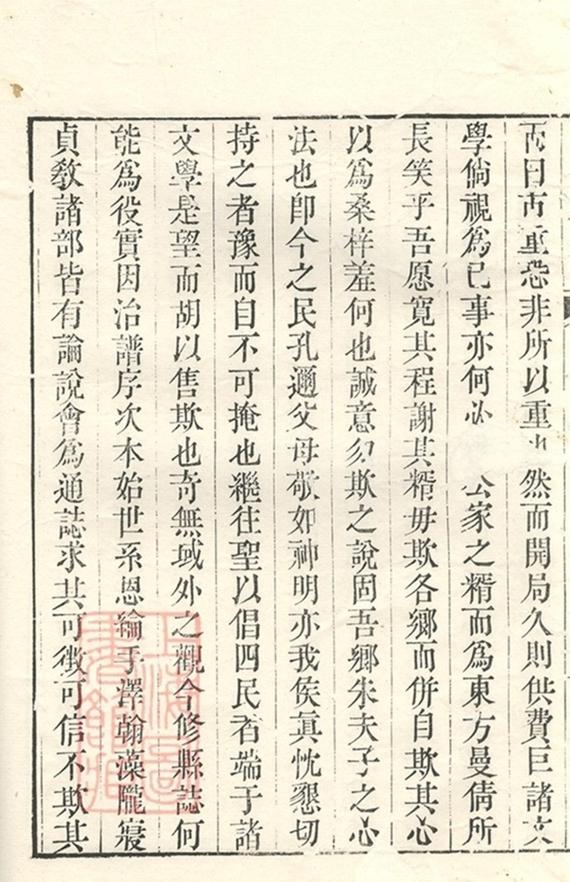 而曰古重恐非所以重也然而開局久則供費巨諸文
學倘視爲已事亦何必 公家之糈而爲東方曼倩所
長笑乎吾愿寬其程謝其糈毋欺各鄉而併自欺其心
以爲桑梓羞何也誠意勿欺之說固吾鄉朱夫子之心
法也卽今之民孔邇父母敬如神明亦我侯眞忱懇切
持之者豫而自不可掩也繼往聖以倡四民者端于諸
文學是望而胡以售欺也奇無域外之觀今修縣誌何
能爲役實因治譜序次本始世系恩綸手澤翰藻隴寢
貞敎諸部皆有論說會爲通誌求其可徵可信不欺其